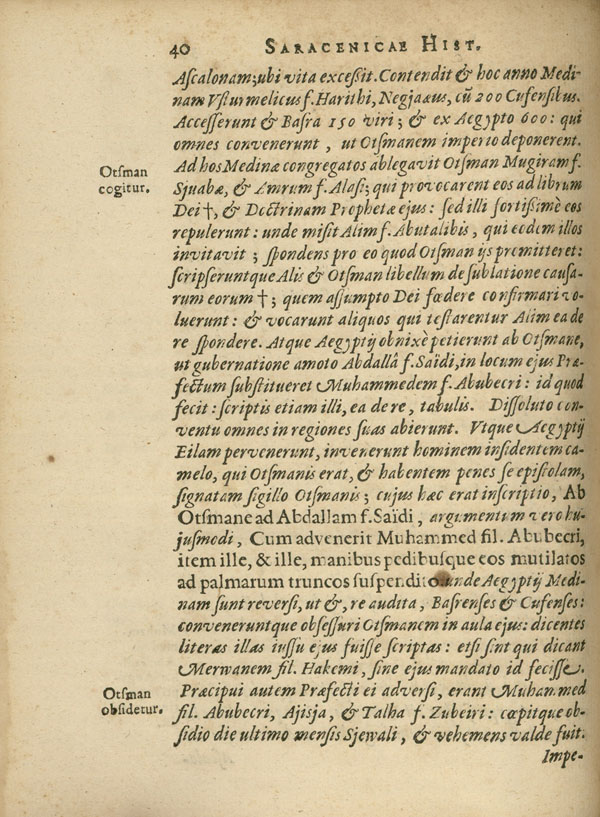 40 SARACENICAE HIST.
Ascalonam; ubi vita excessit. Contendit & hoc anno Medi-
nam Vsturmelicus f. Harithi, Negjaæus, cũ 200 Cufensibus.
Accesserunt & Basra 150 viri; & ex Aegypto 600: qui
omnes convenerunt, ut Otsmanem imperio deponerent.
Otsman
cogitur.
Ad hos Medinæ congregatos ablegavit Otsman Mugiram f.
Sjuabæ, & Amrum f. Alasi; qui provocarent eos ad librum
Dei †, & Doctrinam Prophetæ ejus: sed illi fortissimè eos
repulerunt: unde misit Alim f. Abutalibis, qui eodem illos
invitavit; spondens pro eo quod Otsman ijs promitteret:
scripseruntque Alis & Otsman libellum de sublatione causa-
rum eorum †; quem assumpto Dei fœdere confirmari vo-
luerunt: & vocarunt aliquos qui testarentur Alim ea de
re spondere. Atque Aegyptij obnixè petierunt ab Otsmane,
ut gubernatione amoto Abdallâ f. Saïdi, in locum ejus Præ-
fectum substitueret Muhammedem f. Abubecri: id quod
fecit: scriptis etiam illi, ea de re, tabulis. Dissoluto con-
ventu omnes in regiones suas abierunt. Vtque Aegyptij
Eilam pervenerunt, invenerunt hominem insidentem ca-
melo, qui Otsmanis erat, & habentem penes se epistolam,
signatam sigillo Otsmanis; cujus hæc erat inscriptio, Ab
Otsmane ad Abdallam f. Saïdi, argumentum vero hu-
jusmodi, Cum advenerit Muhammed fil. Abubecri,
item ille, & ille, manibus pedibusque eos mutilatos
ad palmarum truncos suspendito: unde Aegyptij Medi-
nam sunt reversi, ut &, re audita, Basrenses & Cufenses:
conveneruntque obsessuri Otsmanem in aula ejus: dicentes
literas illas iussu ejus fuisse scriptas: etsi sint qui dicant
Merwanem fil. Hakemi, sine ejus mandato id fecisse.
Otsman
obsidetur.
Præcipui autem Præfecti ei adversi, erant Muhammed
fil. Abubecri, Ajisja, & Talha f. Zubeiri: cœpitque ob-
sidio die ultimo mensis Sjewali, & vehemens valde fuit.
Impe-